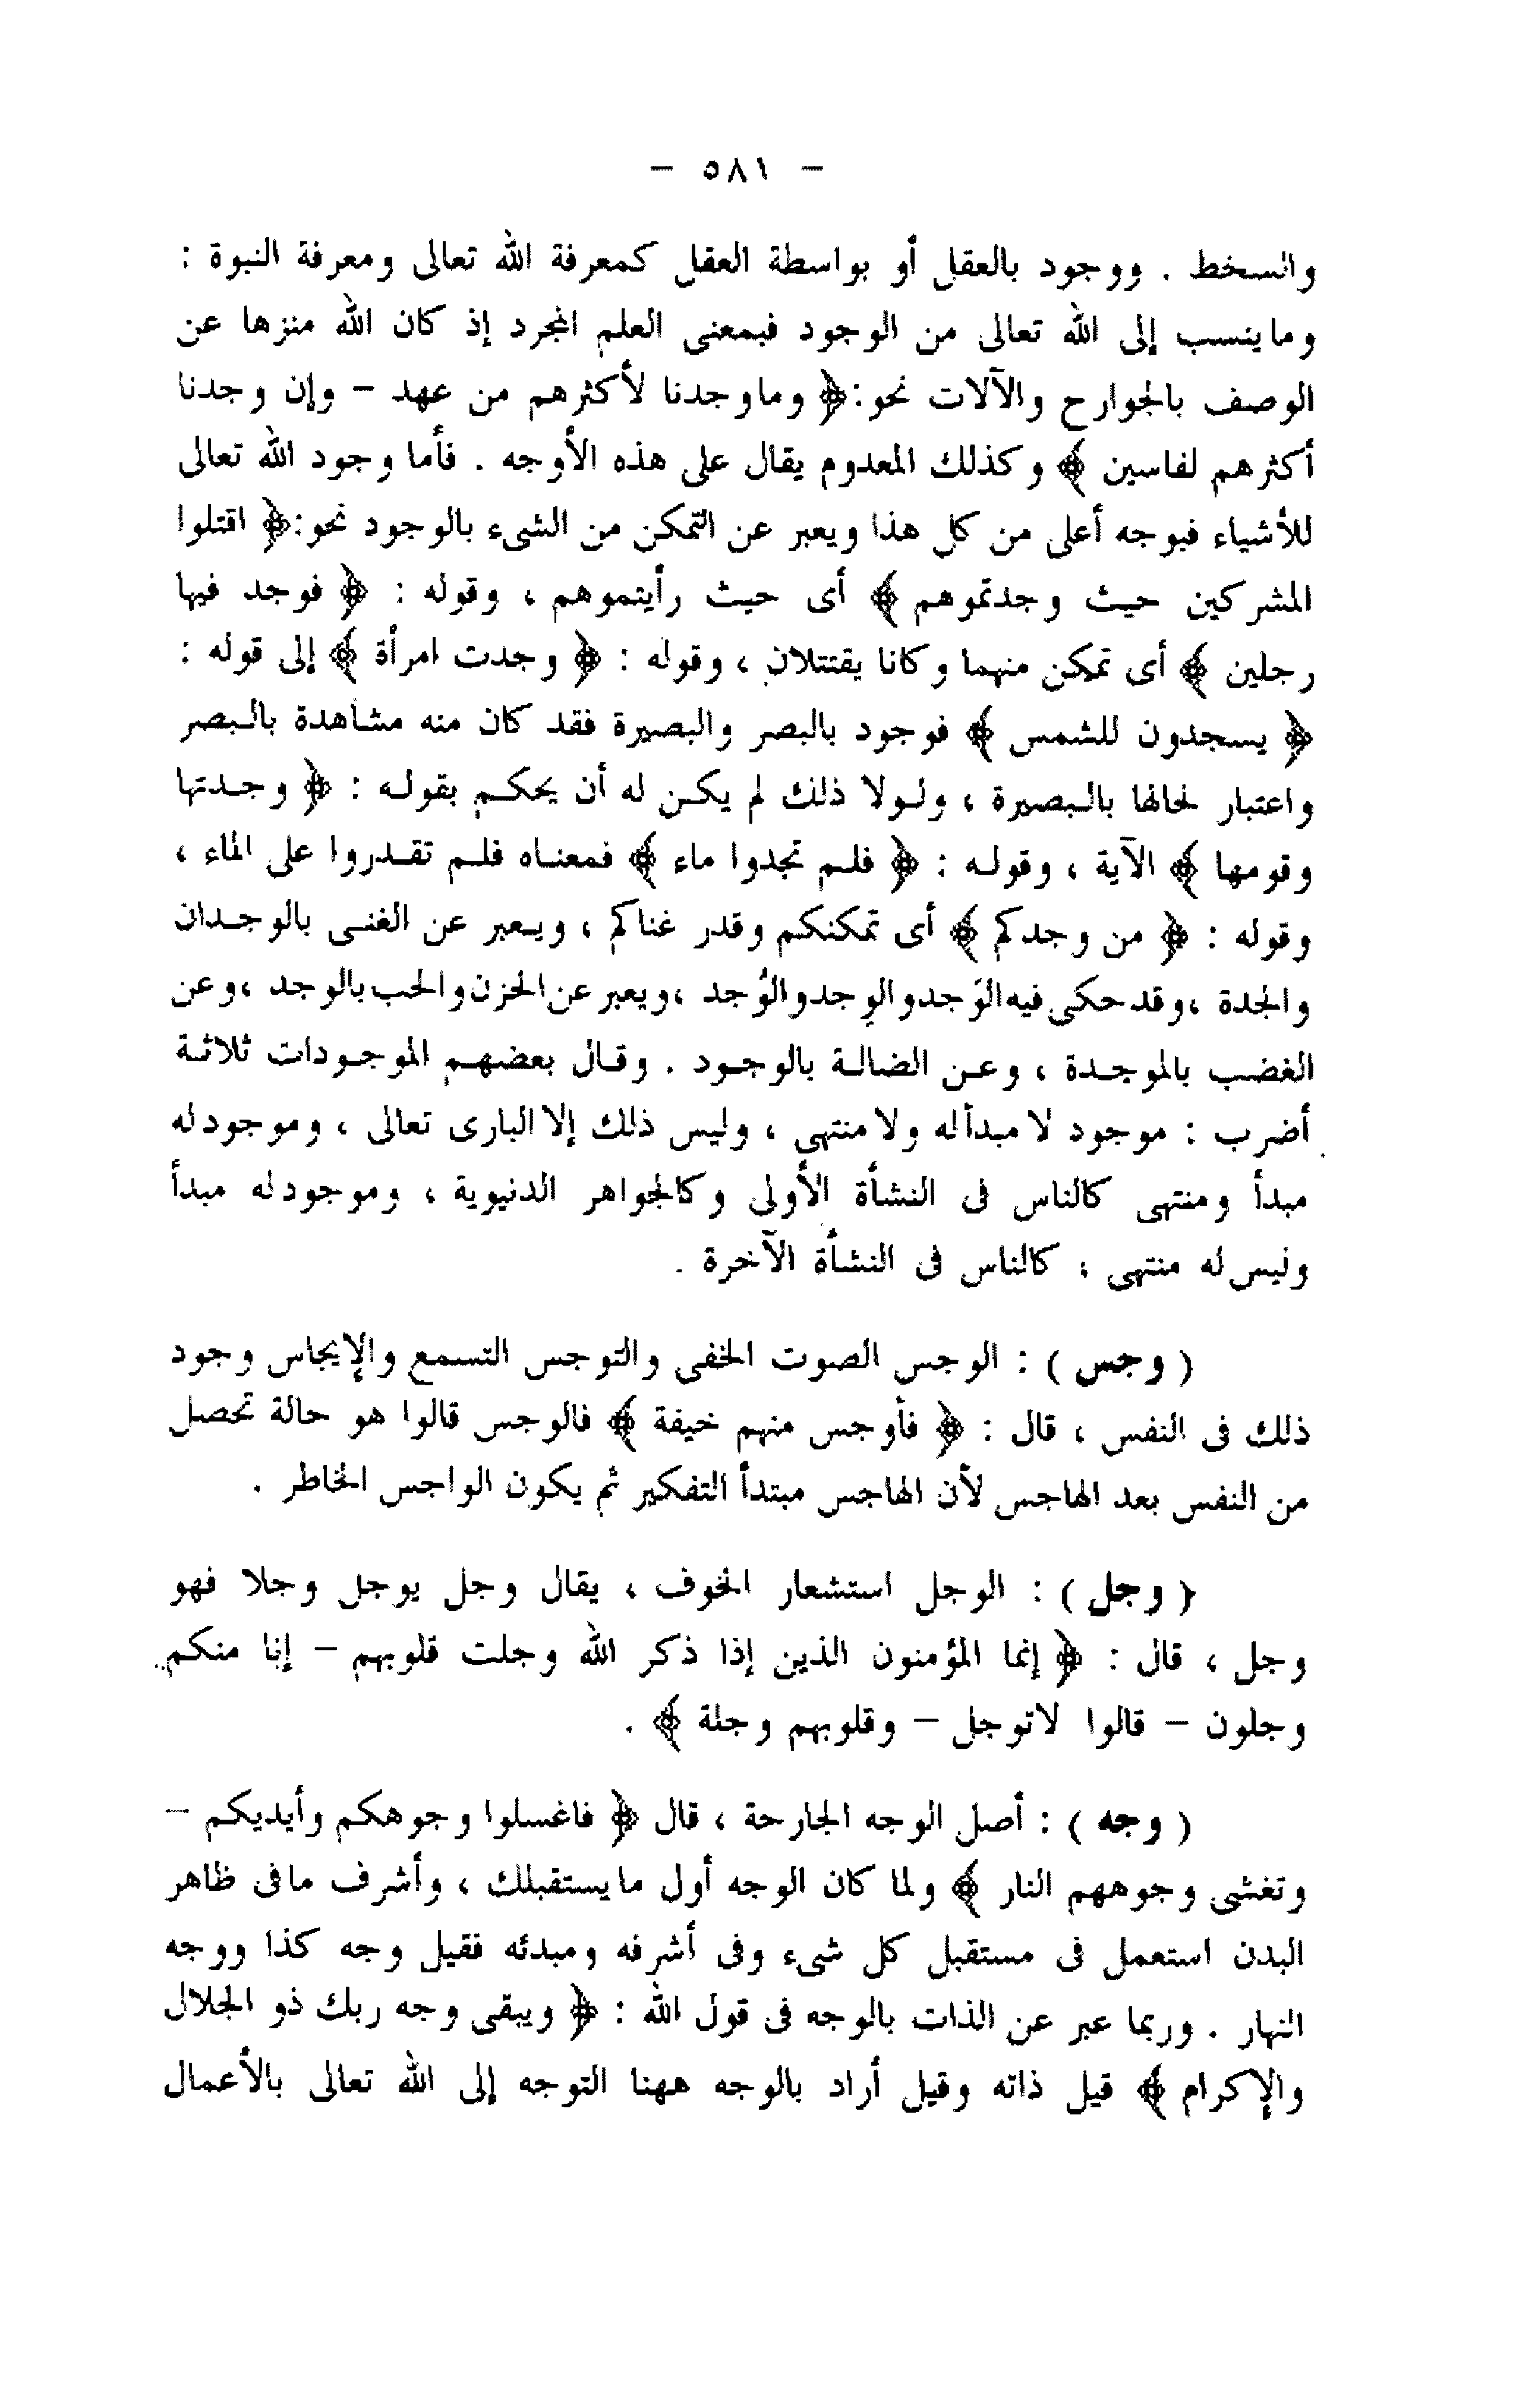 - ٥٨١ -
والسخط . ووجود بالعقل أو بواسطة العقل كمعرفة الله تعالى ومعرفة النبوة :
وما ينسب إلى الله تعالى من الوجود فبمعنى العلم المجرد إذ كان الله منزها عن
الوصف بالجوارح والآلات نحو : ﴿ وما وجدنا لأكثرهم من عهد - وإن وجدنا
أكثرهم لفاسين ﴾ وكذلك المعدوم يقال على هذه الأوجه . فأما وجود الله تعالى
للأشياء فبوجه أعلى من كل هذا ويعبر عن التمكن من الشىء بالوجود نحو : ﴿ اقتلوا
المشركين حيث وجدتموهم ﴾ أى حيث رأيتموهم ، وقوله : ﴿ فوجد فيها
رجلين ﴾ أى تمكن منهما وكانا يقتتلان ، وقوله : ﴿ وجدت امرأة ﴾ إلى قوله :
﴿ يسجدون للشمس ﴾ فوجود بالبصر والبصيرة فقد كان منه مشاهدة بالبصر
واعتبار لحالها بالبصيرة ، ولولا ذلك لم يكن له أن يحكم بقوله : ﴿ وجدتها
وقومها ﴾ الآية ، وقوله : ﴿ فلم تجدوا ماء ﴾ فمعناه فلم تقدروا على الماء ،
وقوله : ﴿ من وجدكم ﴾ أى تمكنكم وقدر غناكم ، ويعبر عن الغنى بالوجدان
والجدة ، وقد حكى فيه الوَجد والوِجد والوُجد ، ويعبر عن الحزن والحب بالوجد ، وعن
الغضب بالموجدة ، وعن الضالة بالوجود . وقال بعضهم الموجودات ثلاثة
أضرب : موجود لا مبدأ له ولا منتهى ، وليس ذلك إلا البارى تعالى ، وموجود له
مبدأ ومنتهى كالناس فى النشأة الأولى وكالجواهر الدنيوية ، وموجود له مبدأ
وليس له منتهى ، كالناس فى النشأة الآخرة .
( وجس ) : الوجس الصوت الخفى والتوجس التسمع والإيجاس وجود
ذلك فى النفس ، قال : ﴿ فأوجس منهم خيفة ﴾ فالوجس قالوا هو حالة تحصل
من النفس بعد الهاجس لأن الهاجس مبتدأ التفكير ثم يكون الواجس الخاطر .
( وجل ) : الوجل استشعار الخوف ، يقال وجل يوجل وجلا فهو
وجل ، قال : ﴿ إنما المؤمنون الذين إذا ذكر الله وجلت قلوبهم - إنا منكم
وجلون - قالوا لاتوجل - وقلوبهم وجلة ﴾ .
( وجه ) : أصل الوجه الجارحة ، قال ﴿ فاغسلوا وجوهكم وأيديكم -
وتغشى وجوههم النار ﴾ ولما كان الوجه أول ما يستقبلك ، وأشرف ما فى ظاهر
البدن استعمل فى مستقبل كل شىء وفى أشرفه ومبدئه فقيل وجه كذا ووجه
النهار . وربما عبر عن الذات بالوجه فى قول الله : ﴿ ويبقى وجه ربك ذو الجلال
والإكرام ﴾ قيل ذاته وقيل أراد بالوجه ههنا التوجه إلى الله تعالى بالأعمال